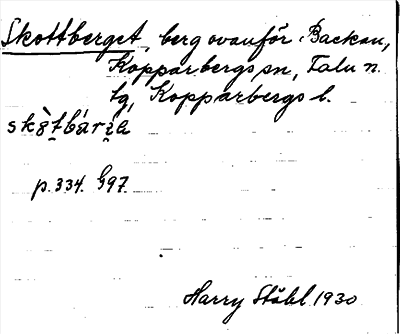 Skottberget, berg ovanför Backan,
Kopparbergs sn, Falu n.
tg, Kopparbergs l.
p. 334. G97.
Harry Ståhl 1930